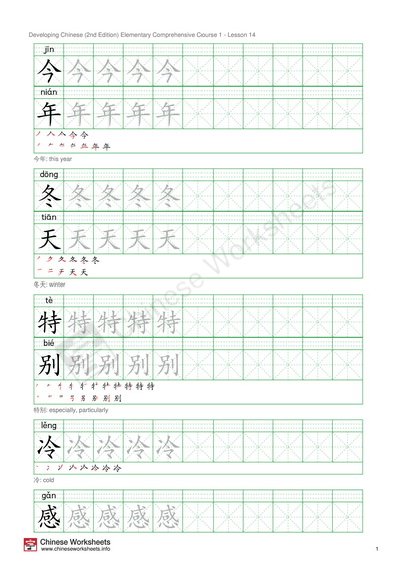 Developing Chinese (2nd Edition) Elementary Comprehensive Course 1 - Lesson 14
jīn
今 今 今 今 今
nián
年 年 年 年 年
今年: this year
dōng
冬 冬 冬 冬 冬
tiān
天 天 天 天 天
冬天: winter
tè
特 特 特 特 特
bié
别 别 别 别 别
特别: especially, particularly
lěng
冷 冷 冷 冷 冷
冷: cold
gǎn
感 感 感 感 感
Chinese Worksheets
Chinese Worksheets
www.chineseworksheets.info
1